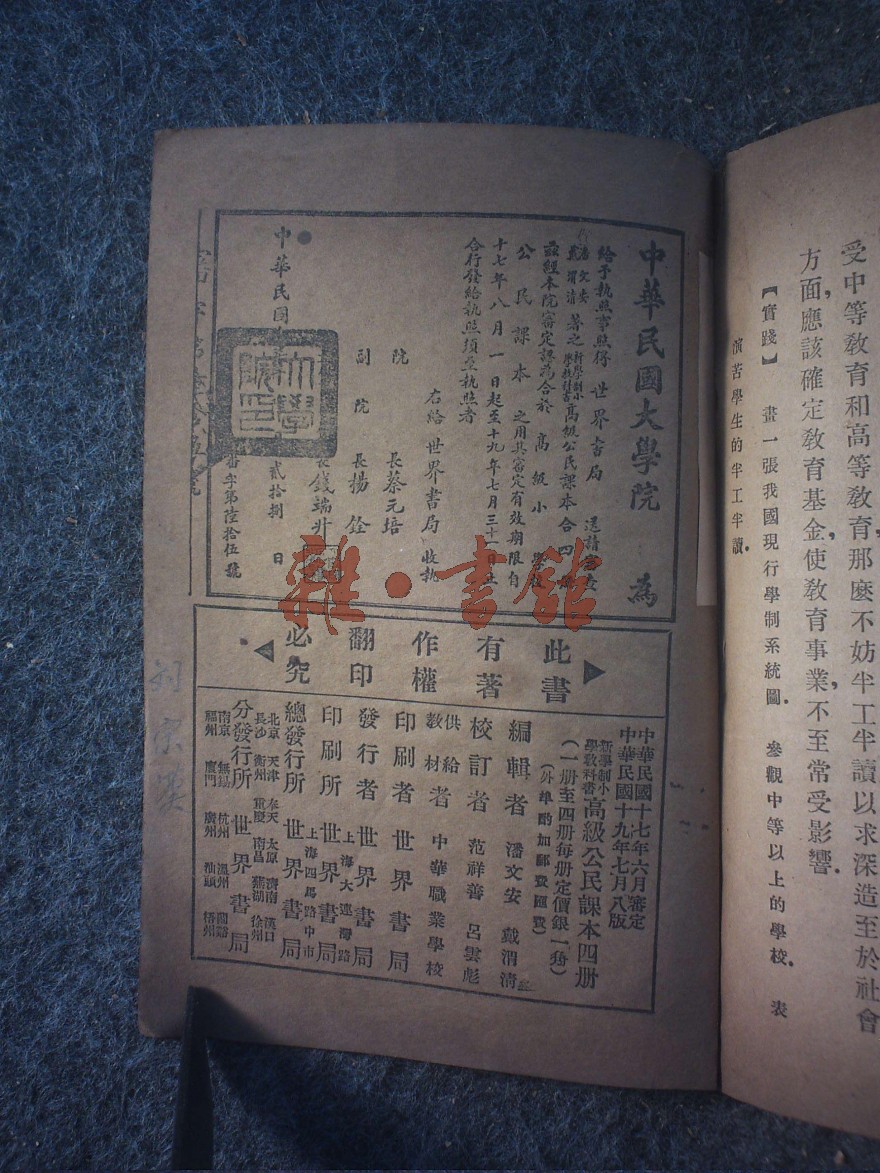 受中等教育和高等教育，那麽不妨半工半讀以求深造至於社會
方面，應該確定教育基金，使教育事業，不至常受影響．
【實踐】 畫一張我國現行學制系統圖． 參觀中等以上的學校． 表
演苦學生的半工半讀．
中華民國大學院 爲
給予執照事照得 世界書局 送請審查
潘文安
戴渭清 著之 新學制小學教科書 高級公民課本合四册
茲經本院審定認爲合於 高級小學校
公民課本 之用其審定有效期限自
十七年八月一日起至十九年七月三十一日止
合行發給執照須至執照者
右給世界書局 收執
院 長蔡元培
副院 長楊銓
長錢端升
中華民國 貳拾捌 日
審字第陸拾伍號
大學院印
此書有著作權翻印必究
中華民國十七年六月審定
中華民國十九年七月八版
新學制小學教科書 高級公民課本四册
（一册至四册每册定價銀一角）
（外埠酌加郵費匯費）
編輯者 潘文安 戴渭清
校訂者 范祥善 呂雲彪
供給教材者 中華職業學校
印刷者 世界書局
發行者 世界書局
印刷所 上海大連灣路 世界書局
總發行所 上海四馬路中市 世界書局
北京 天津 奉天 太原 濟南 漢口
長沙 衡州 重慶 南昌 蕪湖 徐州
分發行所 世界書局
南京 無錫 杭州 溫州 蘭谿
福州 廈門 廣州 汕頭 梧州
刘宗
雜·書館